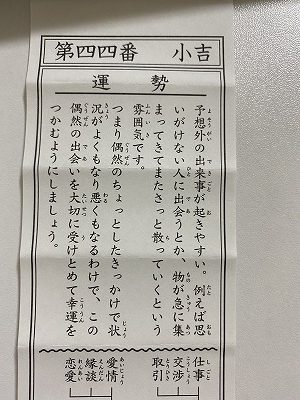 第四四番　小吉
運勢
予想外の出来事が起きやすい。例えば思
いがけない人に出会うとか、物が急に集
まってきてまたさっと散っていくという
雰囲気です。
つまり偶然のちょっとしたきっかけで状
況がよくもなり悪くもなるわけで、この
偶然の出会いを大切に受けとめて幸運を
つかむようにしましょう。
仕事
交渉
取引
愛情
縁談
恋愛